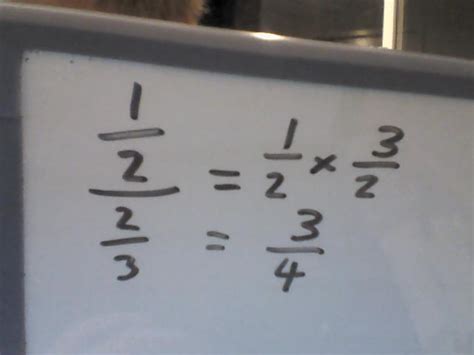 1/2 / 2/3 = 1/2 × 3/2
= 3/4